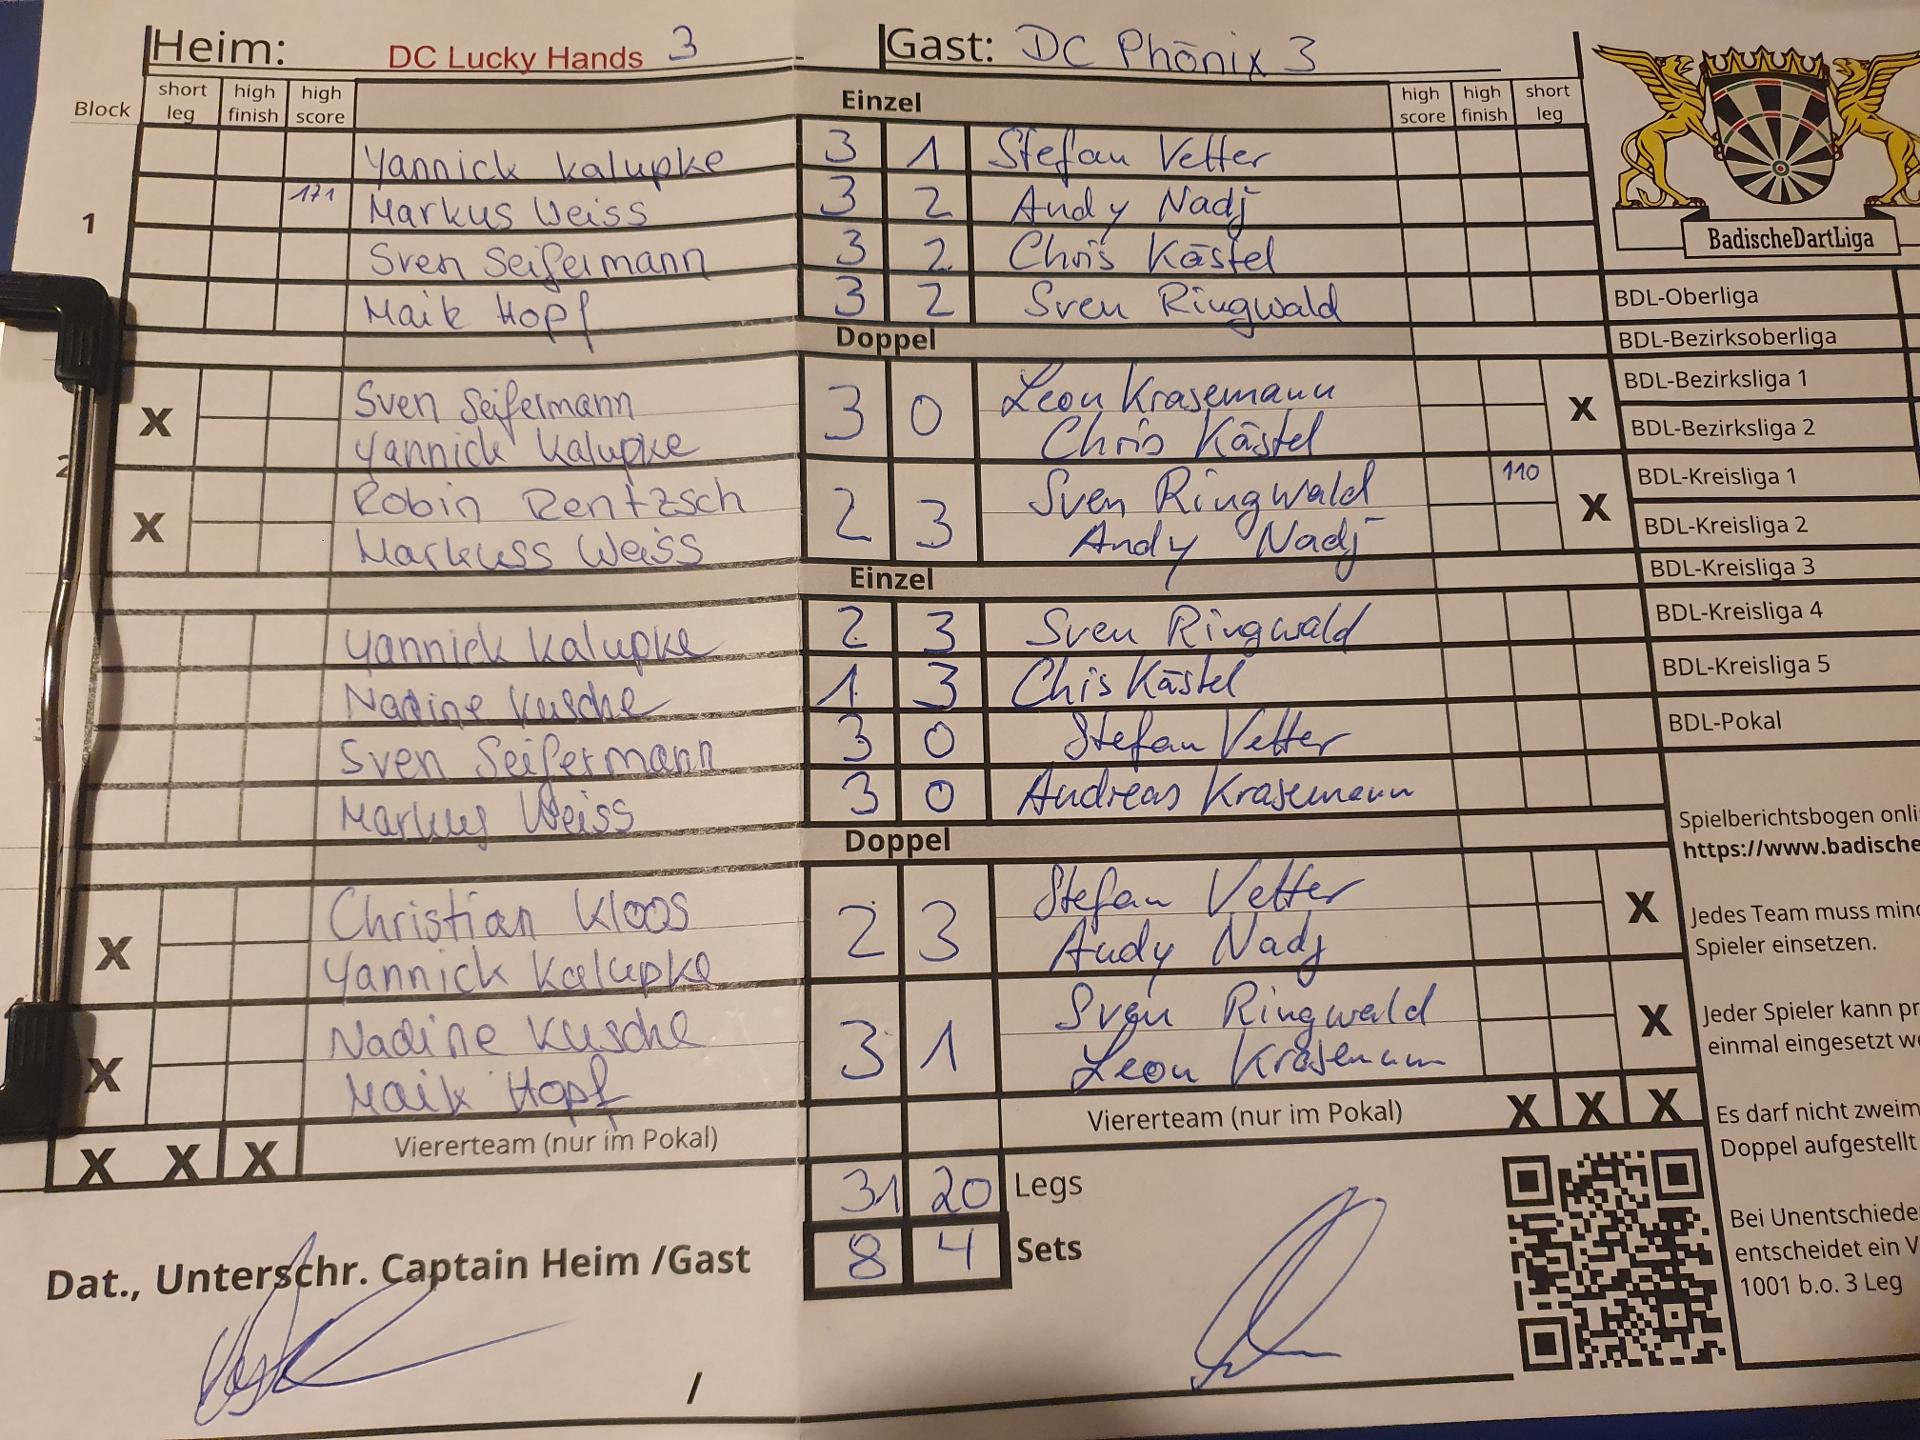 Heim: DC Lucky Hands 3
Gast: DC Phönix 3
Block short leg high finish high score Einzel high score high finish short leg
Yannick Kalupke 3 1 Stefan Vetter
1 171 Markus Weiss 3 2 Andy Nadj
Sven Seifermann 3 2 Chris Kästel
Maik Hopf 3 2 Sven Ringwald
Doppel
X Sven Seifermann 3 0 Leon Krasemann X
Yannick Kalupke Chris Kästel
2
X Robin Rentzsch 2 3 Sven Ringwald 110 X
Markuss Weiss Andy Nadj
Einzel
Yannick Kalupke 2 3 Sven Ringwald
Nadine Kusche 1 3 Chis Kästel
Sven Seifermann 3 0 Stefan Vetter
Markus Weiss 3 0 Andreas Krasemann
Doppel
X Christian Kloos 2 3 Stefan Vetter X
Yannick Kalupke Andy Nadj
X Nadine Kusche 3 1 Sven Ringwald X
Maik Hopf Leon Krasemann
X X X Viererteam (nur im Pokal) Viererteam (nur im Pokal) X X X
31 20 Legs
8 4 Sets
Dat., Unterschr. Captain Heim /Gast
/
BadischeDartLiga
BDL-Oberliga
BDL-Bezirksoberliga
BDL-Bezirksliga 1
BDL-Bezirksliga 2
BDL-Kreisliga 1
BDL-Kreisliga 2
BDL-Kreisliga 3
BDL-Kreisliga 4
BDL-Kreisliga 5
BDL-Pokal
Spielberichtsbogen onli
https://www.badische
Jedes Team muss mind
Spieler einsetzen.
Jeder Spieler kann pr
einmal eingesetzt we
Es darf nicht zweim
Doppel aufgestellt
Bei Unentschiede
entscheidet ein V
1001 b.o. 3 Leg